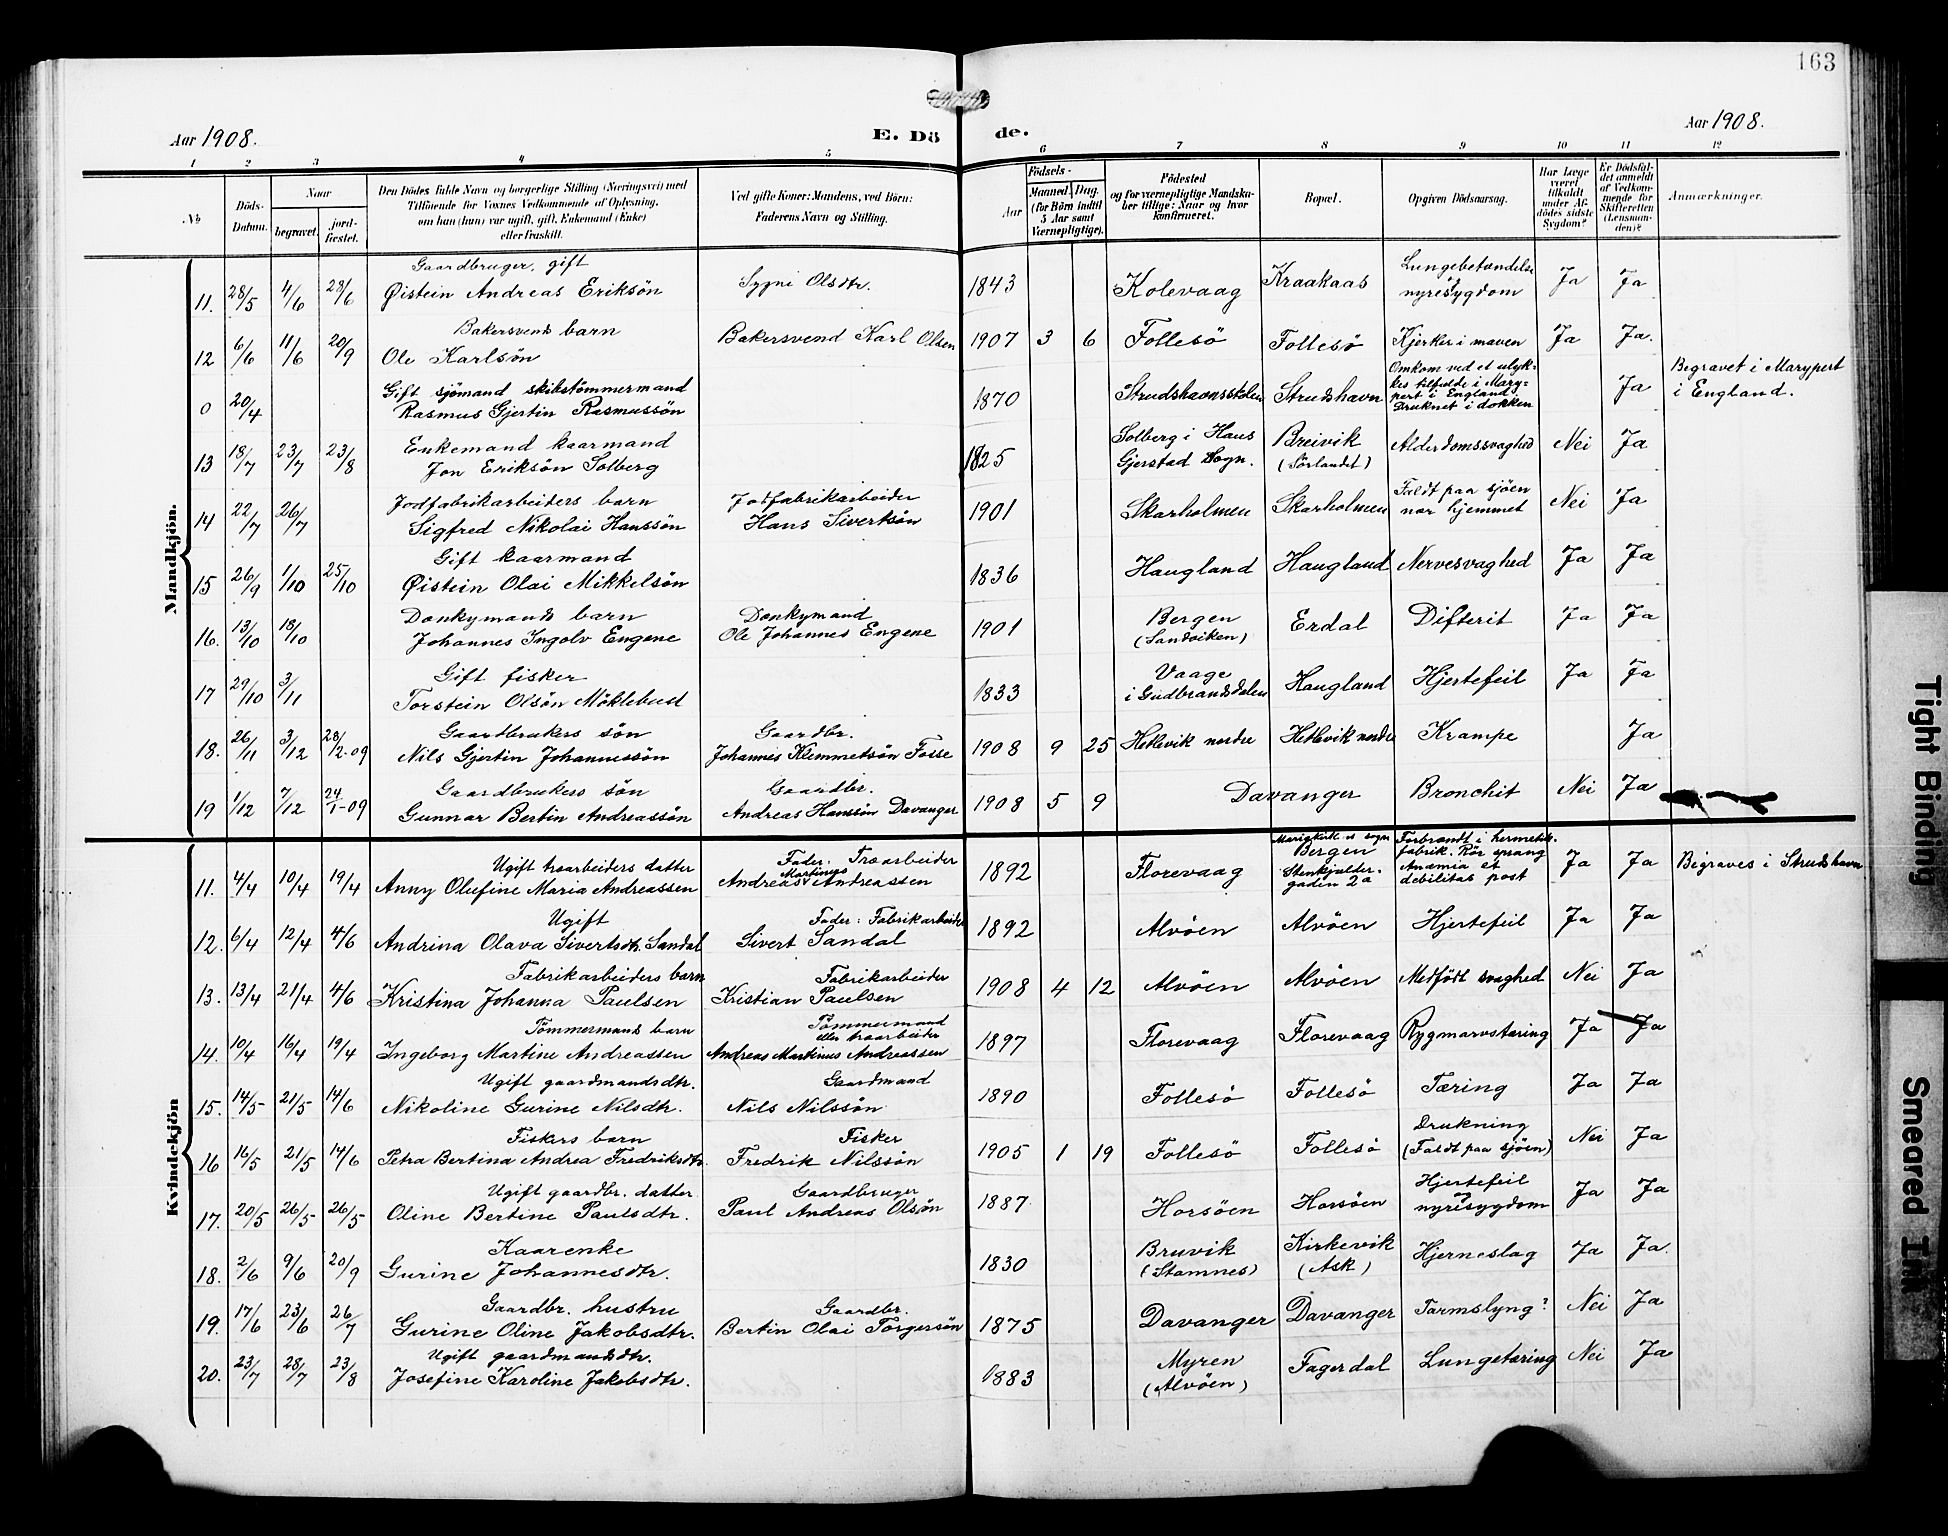 163
Aar 1908.
E. Dö de.
Aar 1908.
1 2 3 4 5 6 7 8 9 10 11 12
No
Döds-Datum.
Naar
begravet.
jord-fæstet.
Den Dödes fulde Navn og borgerlige Stilling (Næringsvei) med
Tilföiende for Voxnes Vedkommende af Oplysning,
om han (hun) var ugift, gift, Enkemand (Enke)
eller fraskilt.
Ved gifte Koner: Mandens, ved Börn:
Faderens Navn og Stilling.
Födsels-
Aar
Maaned. Dag.
(for Börn indtil
5 Aar samt
Værnepligtige).
Födested
og for værnepligtige Mandska-
ber tillige: Naar og hvor
konfirmeret.
Bopæl.
Opgiven Dödsaarsag.
Har Læge
været
tilkaldt
under Af-
dödes sidste
Sygdom?
Er Dödsfal-
det anmeldt
af Vedkom-
mende for
Skifteretten
(Lensman-
den)?
Anmærkninger.
Mandkjön.
Gaardbruger, gift
11. 28/5 4/6 28/6 Øistein Andreas Eriksön Sygni Olsdtr. 1843 Kolevaag Kraakaas Lungebetændelse
nyresygdom Ja Ja
Bakersvends barn
12 6/6 11/6 20/9 Ole Karlsön Bakersvend Karl Olsen 1907 3 6 Follesö Follesö Kjerker i maven Ja Ja.
Gift sjömand skibstömmermand
0 20/4 Rasmus Gjertin Rasmussön 1870 Strudshavnsstølen Strudshavn Omkom ved et ulyk-
kes tilfælde i Mary-
port i England
Druknet i dokken Ja Begravet i Marypert
i England.
Enkemand kaarmand
13 18/7 23/7 23/8 Jon Eriksön Solberg 1825 Solberg i Haus
Gjerstad Sogn. Breivik
(Sörlandet) Alderdomssvaghed Nei Ja
Jodfabrikarbeiders barn Jodfabrikarbeider
14 22/7 26/7 Sigfred Nikolai Hanssön Hans Sivertsön 1901 Skarholmen Skarholmen Faldt paa sjöen
nær hjemmet Nei Ja
Gift kaarmand
15 26/9 1/10 25/10 Øistein Olai Mikkelsön 1836 Haugland Haugland Nervesvaghed Ja Ja
Donkymands barn Donkymand
16. 13/10 18/10 Johannes Ingolv Engene Ole Johannes Engene 1901 Bergen
(Sandviken) Erdal Difterit Ja Ja
Gift fisker
17 29/10 3/11 Torstein Olsön Möklebust 1833 Vaage
i Gudbrandsdalen Haugland Hjertefeil Ja Ja
Gaardbrukers sön Gaardbr.
18. 26/11 3/12 28/2-09 Nils Gjertin Johannessön Johannes Klemmetsön Fosse 1908 9 25 Hetlevik nordre Hetlevik nordre Krampe Ja
Gaardbrukers sön Gaardbr.
19 1/12 7/12 24/1-09 Gunnar Bertin Andreassön Andreas Hanssön Davanger 1908 5 9 Davanger Bronchit Nei Ja
Kvindekjön
Ugift træarbeiders datter Fader: Træarbeider
11. 4/4 10/4 19/4 Anny Olufine Maria Andreassen Andreas Martinus Andreassen 1892 Florevaag Mariakirkens sogn
Bergen
Stenkjelder-
gaden 2a Forbrændt i hermetik-
fabrik. Rör sprang
Anæmia et
debilitas post Ja Ja Begraves i Strudshavn
Ugift Fader: Fabrikarbeider
12. 6/4 12/4 4/6 Andrina Olava Sivertsdtr. Sandal Sivert Sandal 1892 Alvöen Alvöen Hjertefeil Ja Ja
Fabrikarbeiders barn Fabrikarbeider
13. 13/4 21/4 4/6 Kristina Johanna Paulsen Kristian Paulsen 1908 4 12 Alvöen Alvöen Medfödt svaghed Nei Ja
Tömmermands barn Tömmermand
eller træarbeider
14. 10/4 16/4 19/4 Ingeborg Martine Andreassen Andreas Martinus Andreassen 1897 Florevaag Florevaag Rygmarvstæring Ja Ja
Ugift gaardmandsdtr. Gaardmand
15. 14/5 21/5 14/6 Nikoline Gurine Nilsdtr. Nils Nilssön 1890 Follesö Follesö Tæring Ja Ja
Fiskers barn Fisker
16 16/5 21/5 14/6 Petra Bertina Andrea Fredriksdtr. Fredrik Nilssön 1905 1 19 Follesö Follesö Drukning
(Faldt paa sjöen) Nei Ja
Ugift gaardbr. datter Gaardbruger
17. 20/5 26/5 26/5 Oline Bertine Paulsdtr. Paul Andreas Olsön 1887 Horsöen Horsöen Hjertefeil
nyresygdom Ja Ja
Kaarenke
18. 2/6 9/6 20/9 Gurine Johannesdtr. 1830 Bruvik
(Stamnes) Kirkevik
(Ask) Hjerneslag Ja Ja.
Gaardbr. hustru Gaardbr.
19. 17/6 23/6 26/7 Gurine Oline Jakobsdtr. Bertin Olai Torgersön 1875 Davanger Davanger Tarmslyng? Nei Ja
Ugift gaardmandsdtr.
20. 23/7 28/7 23/8 Josefine Karoline Jakobsdtr. 1883 Myren
(Alvöen) Fagerdal Lungetæring Nei Ja
Tight Binding
Smeared Ink